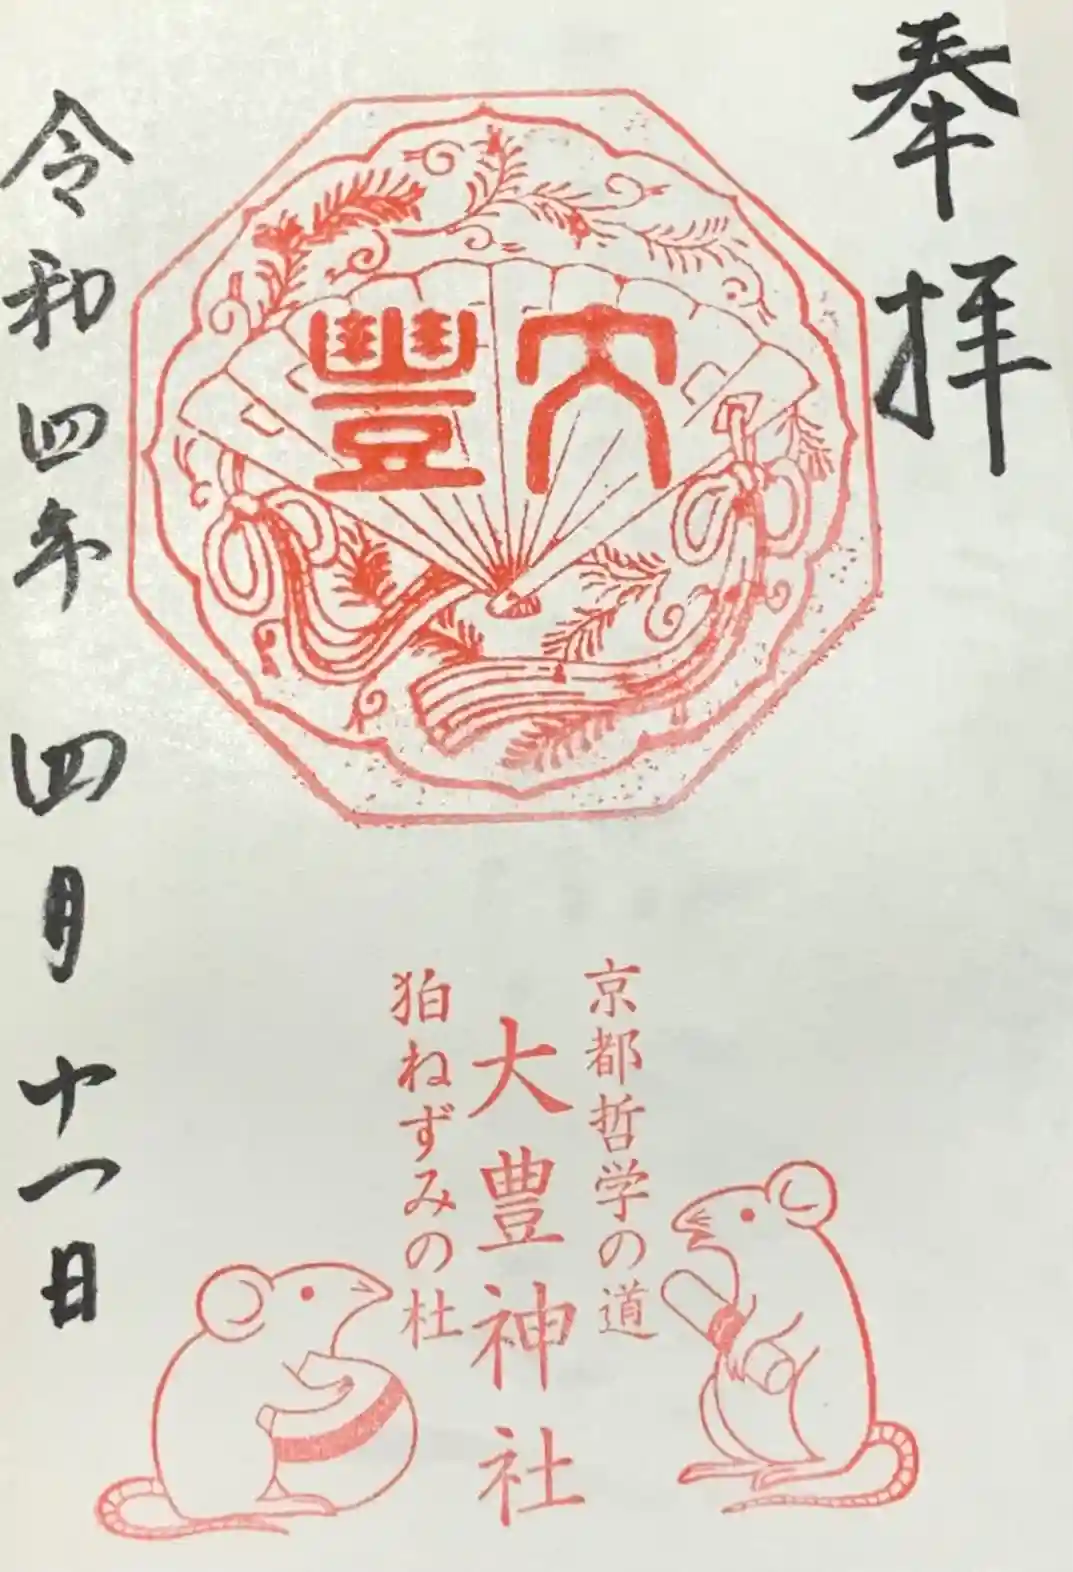 奉拝
大豐
京都哲学の道
大豊神社
狛ねずみの杜
令和四年四月十一日